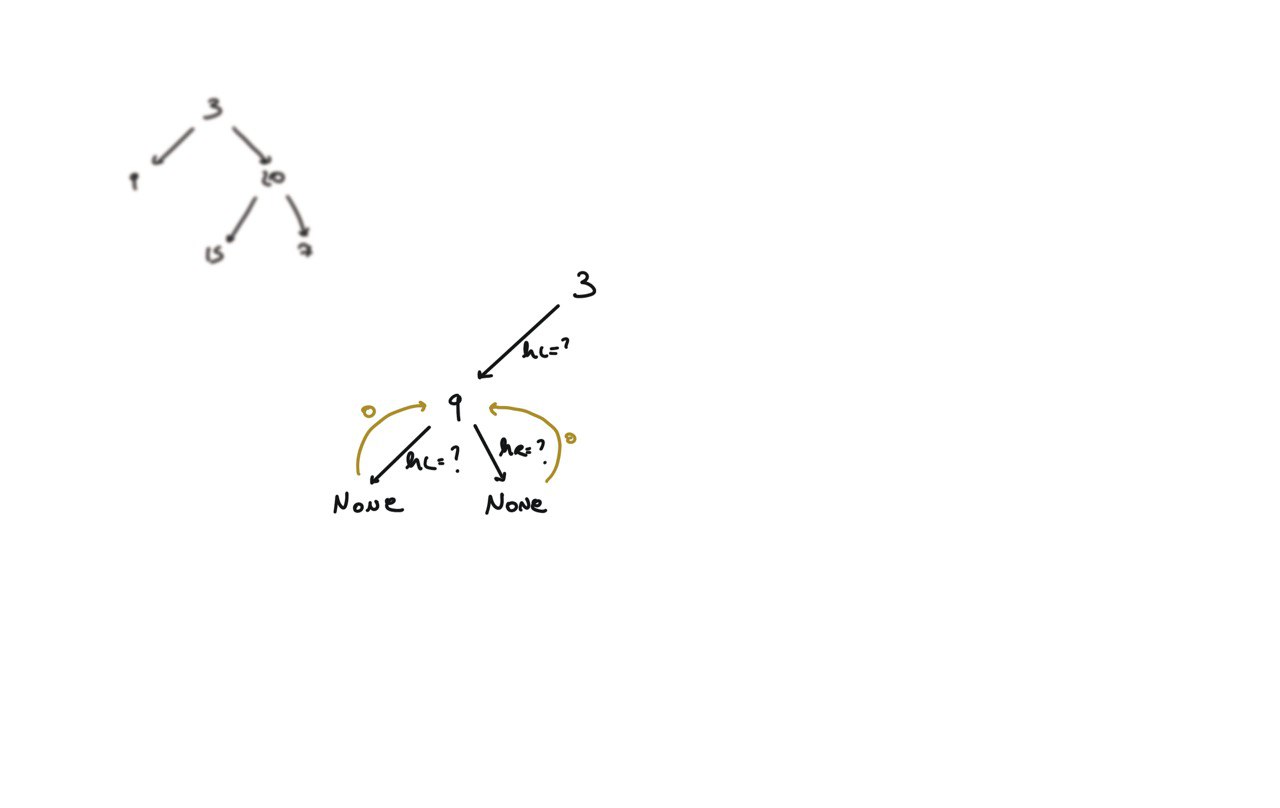 3
9 20
15 7
3
hL=?
0 9 0
hL=? hR=?
None None